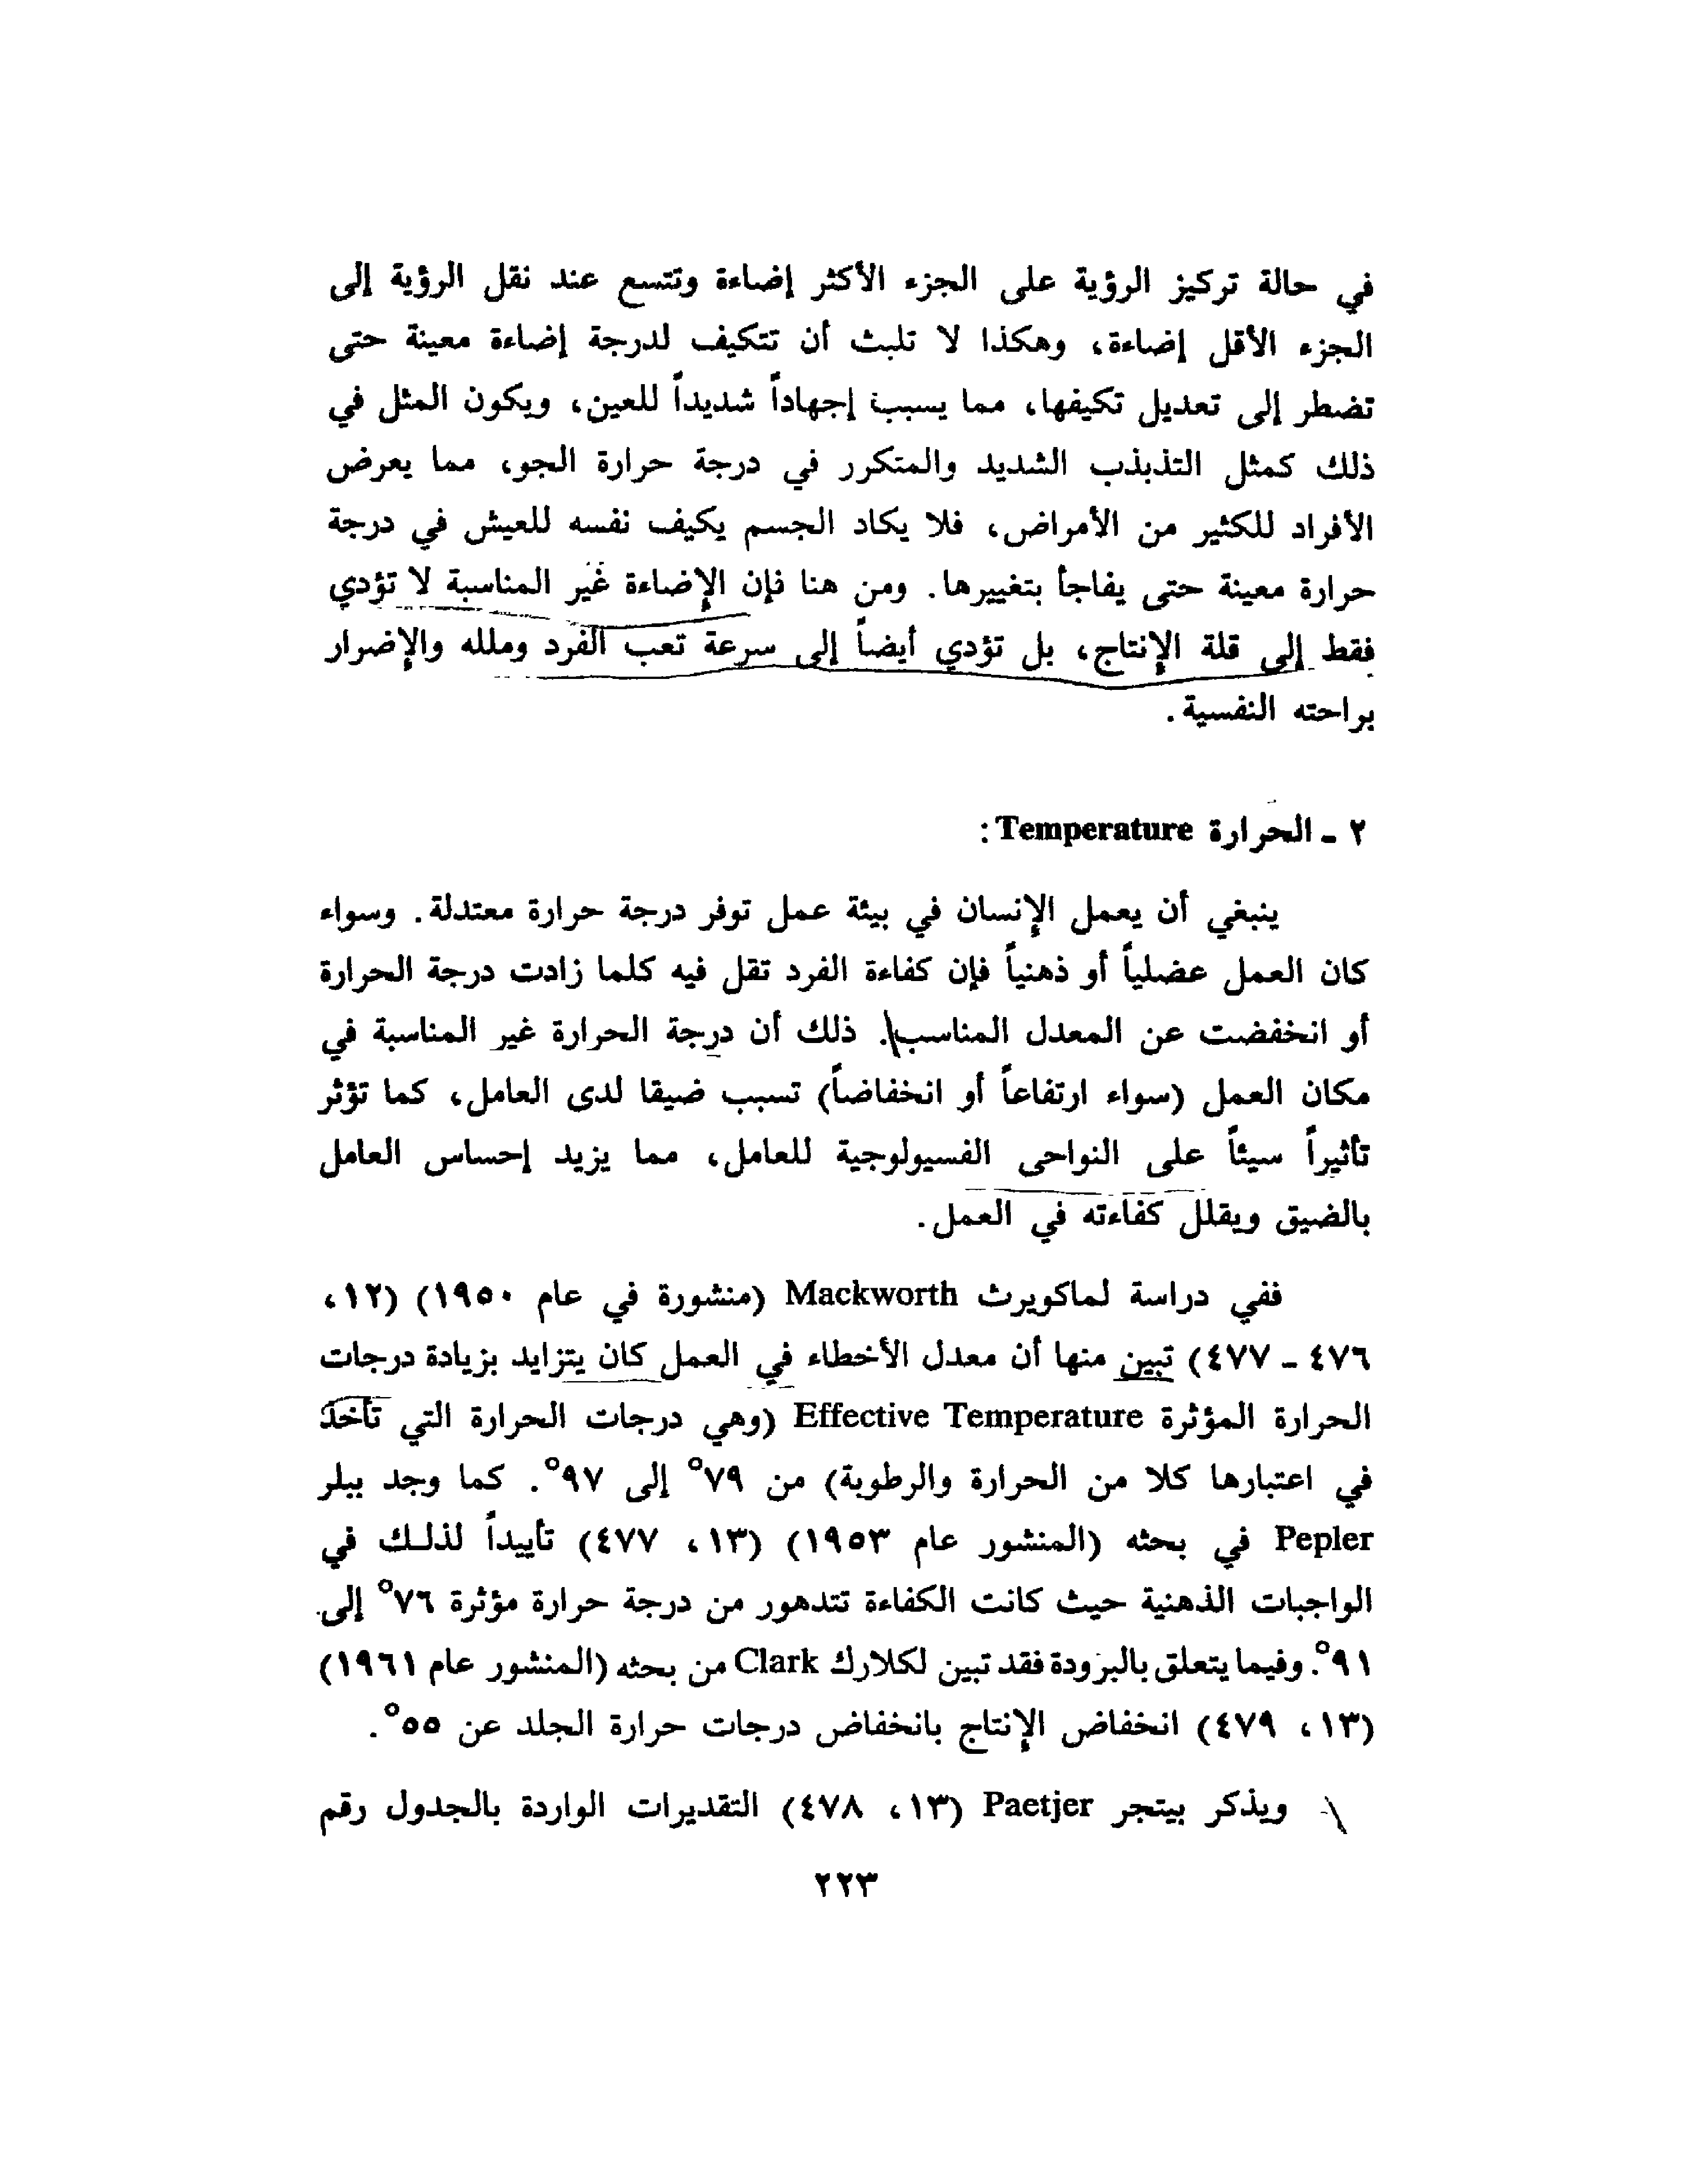 في حالة تركيز الرؤية على الجزء الأكثر إضاءة وتتسع عند نقل الرؤية إلى
الجزء الأقل إضاءة، وهكذا لا تلبث أن تتكيف لدرجة إضاءة معينة حتى
تضطر إلى تعديل تكيفها، مما يسبب إجهاداً شديداً للعين، ويكون المثل في
ذلك كمثل التذبذب الشديد والمتكرر في درجة حرارة الجو، مما يعرض
الأفراد للكثير من الأمراض، فلا يكاد الجسم يكيف نفسه للعيش في درجة
حرارة معينة حتى يفاجأ بتغييرها. ومن هنا فإن الإضاءة غير المناسبة لا تؤدي
فقط إلى قلة الإنتاج، بل تؤدي أيضاً إلى سرعة تعب الفرد وملله والإضرار
براحته النفسية.
٢ ـ الحرارة Temperature:
ينبغي أن يعمل الإنسان في بيئة عمل توفر درجة حرارة معتدلة. وسواء
كان العمل عضلياً أو ذهنياً فإن كفاءة الفرد تقل فيه كلما زادت درجة الحرارة
أو انخفضت عن المعدل المناسب. ذلك أن درجة الحرارة غير المناسبة في
مكان العمل (سواء ارتفاعاً أو انخفاضاً) تسبب ضيقا لدى العامل، كما تؤثر
تأثيراً سيئاً على النواحى الفسيولوجية للعامل، مما يزيد إحساس العامل
بالضيق ويقلل كفاءته في العمل.
ففي دراسة لماكويرث Mackworth (منشورة في عام ١٩٥٠) (١٢،
٤٧٦ ـ ٤٧٧) تبين منها أن معدل الأخطاء في العمل كان يتزايد بزيادة درجات
الحرارة المؤثرة Effective Temperature (وهي درجات الحرارة التي تأخذ
في اعتبارها كلا من الحرارة والرطوبة) من ٧٩° إلى ٩٧°. كما وجد ببلر
Pepler في بحثه (المنشور عام ١٩٥٣) (١٣، ٤٧٧) تأييداً لذلك في
الواجبات الذهنية حيث كانت الكفاءة تتدهور من درجة حرارة مؤثرة ٧٦° إلى
٩١°. وفيما يتعلق بالبرودة فقد تبين لكلارك Clark من بحثه (المنشور عام ١٩٦١)
(١٣، ٤٧٩) انخفاض الإنتاج بانخفاض درجات حرارة الجلد عن ٥٥°.
ويذكر بيتجر Paetjer (١٣، ٤٧٨) التقديرات الواردة بالجدول رقم
٢٢٣